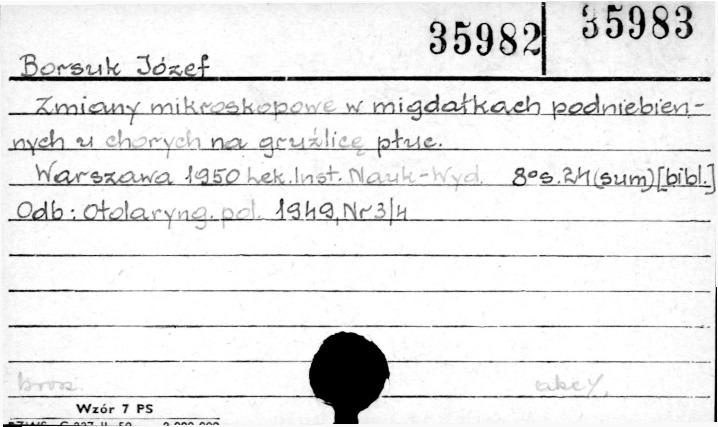 35982 35983
Borsuk Józef
Zmiany mikroskopowe w migdałkach podniebien-
nych u chorych na gruźlicę płuc.
Warszawa 1950 Lek.Inst.Nauk-Wyd. 8°s.24(sum)[bibl.]
Odb: Otolaryng. pol. 1949, Nr 3/4
brosz.
Wzór 7 PS